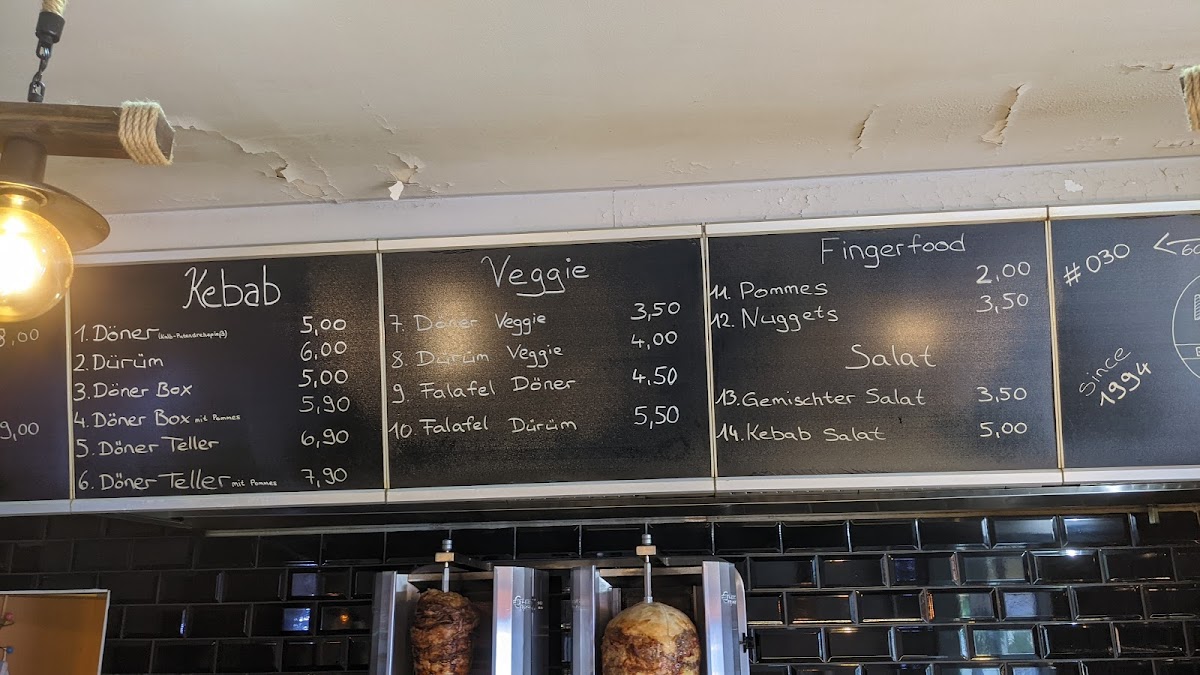 8,00
9,00
Kebab
1. Döner (Kalb-Putendrehspieß) 5,00
2. Dürüm 6,00
3. Döner Box 5,00
4. Döner Box mit Pommes 5,90
5. Döner Teller 6,90
6. Döner Teller mit Pommes 7,90
Veggie
7. Döner Veggie 3,50
8. Dürüm Veggie 4,00
9. Falafel Döner 4,50
10. Falafel Dürüm 5,50
Fingerfood
11. Pommes 2,00
12. Nuggets 3,50
Salat
13. Gemischter Salat 3,50
14. Kebab Salat 5,00
#030
Since
1994